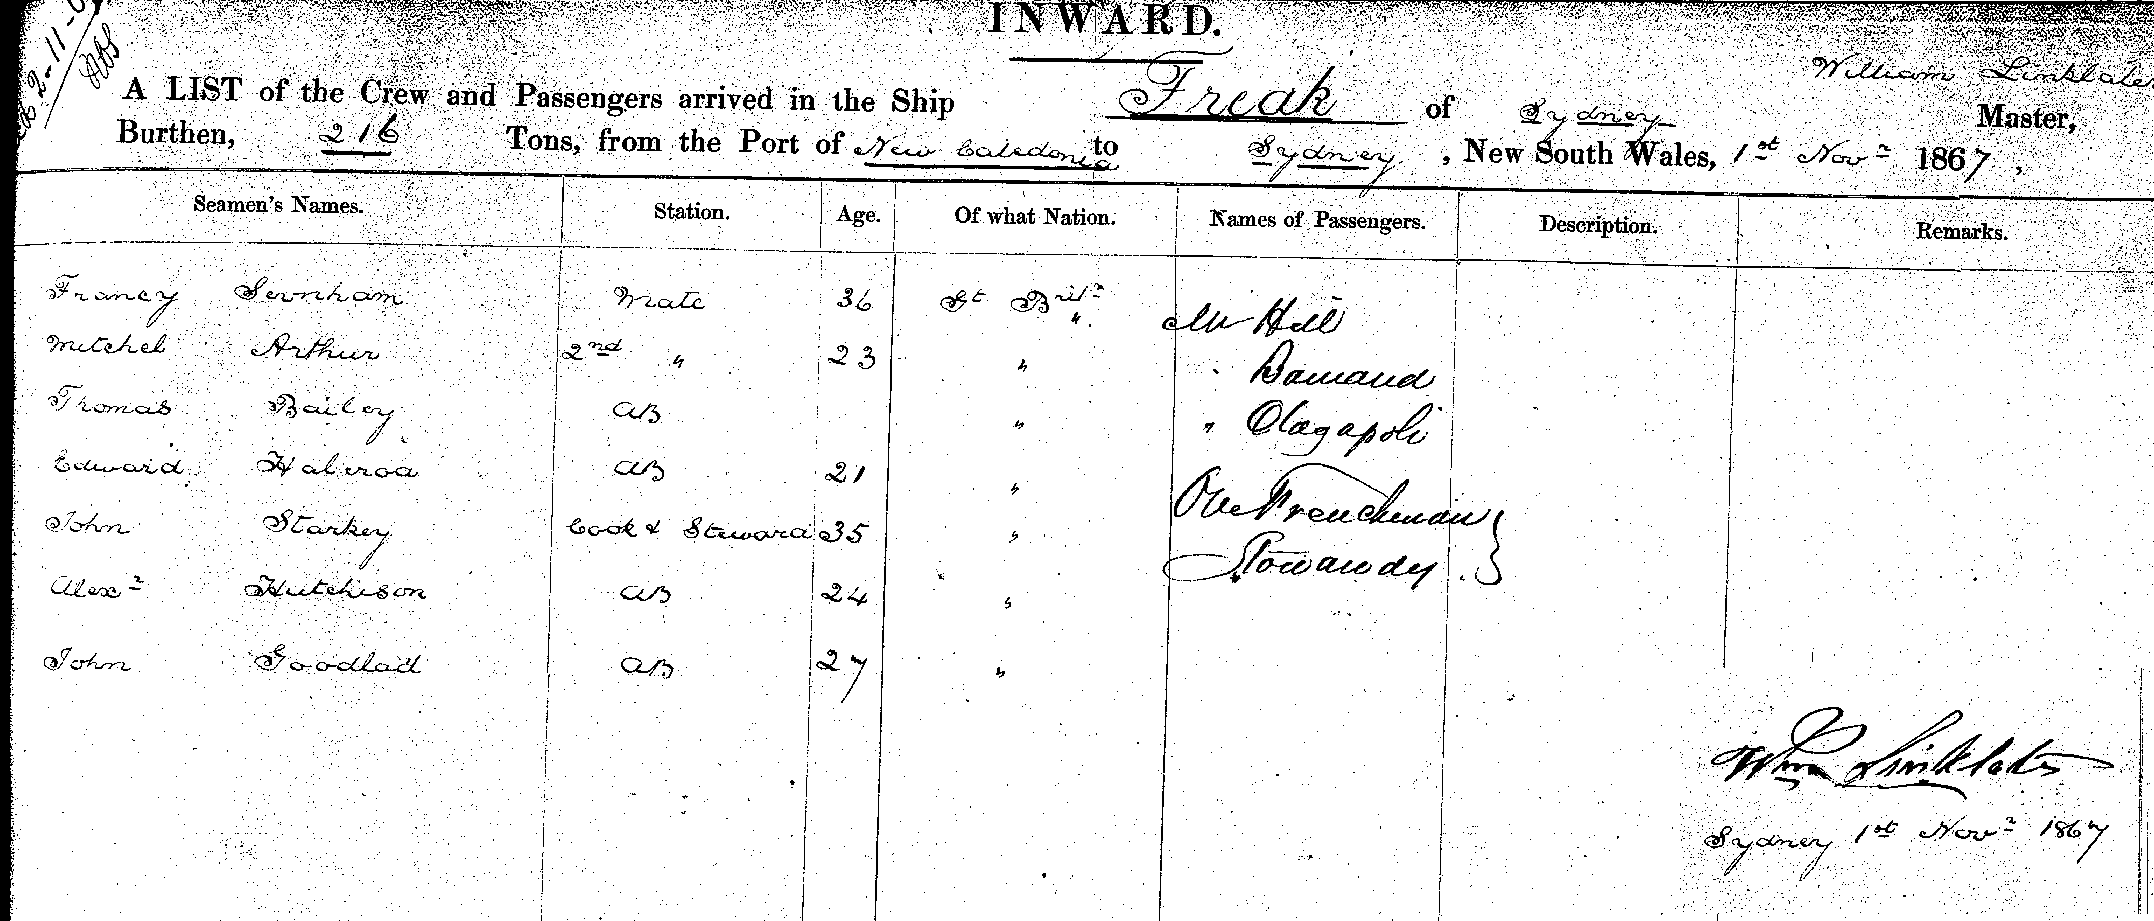 INWARD.
William Linklater
A LIST of the Crew and Passengers arrived in the Ship Freak of Sydney Master,
Burthen, 216 Tons, from the Port of New Caledonia to Sydney, New South Wales, 1st Novr 1867,
Seamen's Names. Station. Age. Of what Nation. Names of Passengers. Description. Remarks.
Francy Mate 36 Gt Britn
Mr Hill
Mitchel Arthur 2nd " 23 "
Thomas Bailey AB "
Edward AB 21 "
One Frenchman
John Starkey Cook & Steward 35 "
Alexr Hutchison AB 24 "
John Goodlad AB 27 "
Wm Linklater
Sydney 1st Novr 1867